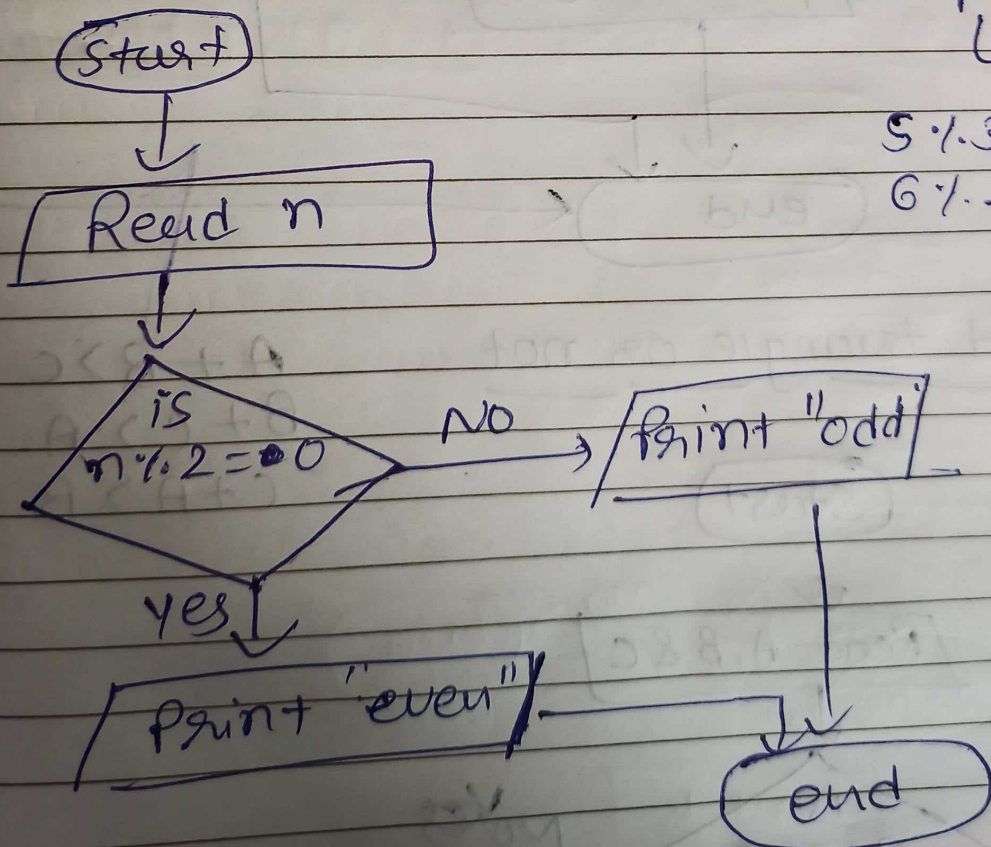 Start
5 % 3
6 %
Read n
is
n % 2 = 0
NO
Print "odd
yes
Print "even"
end